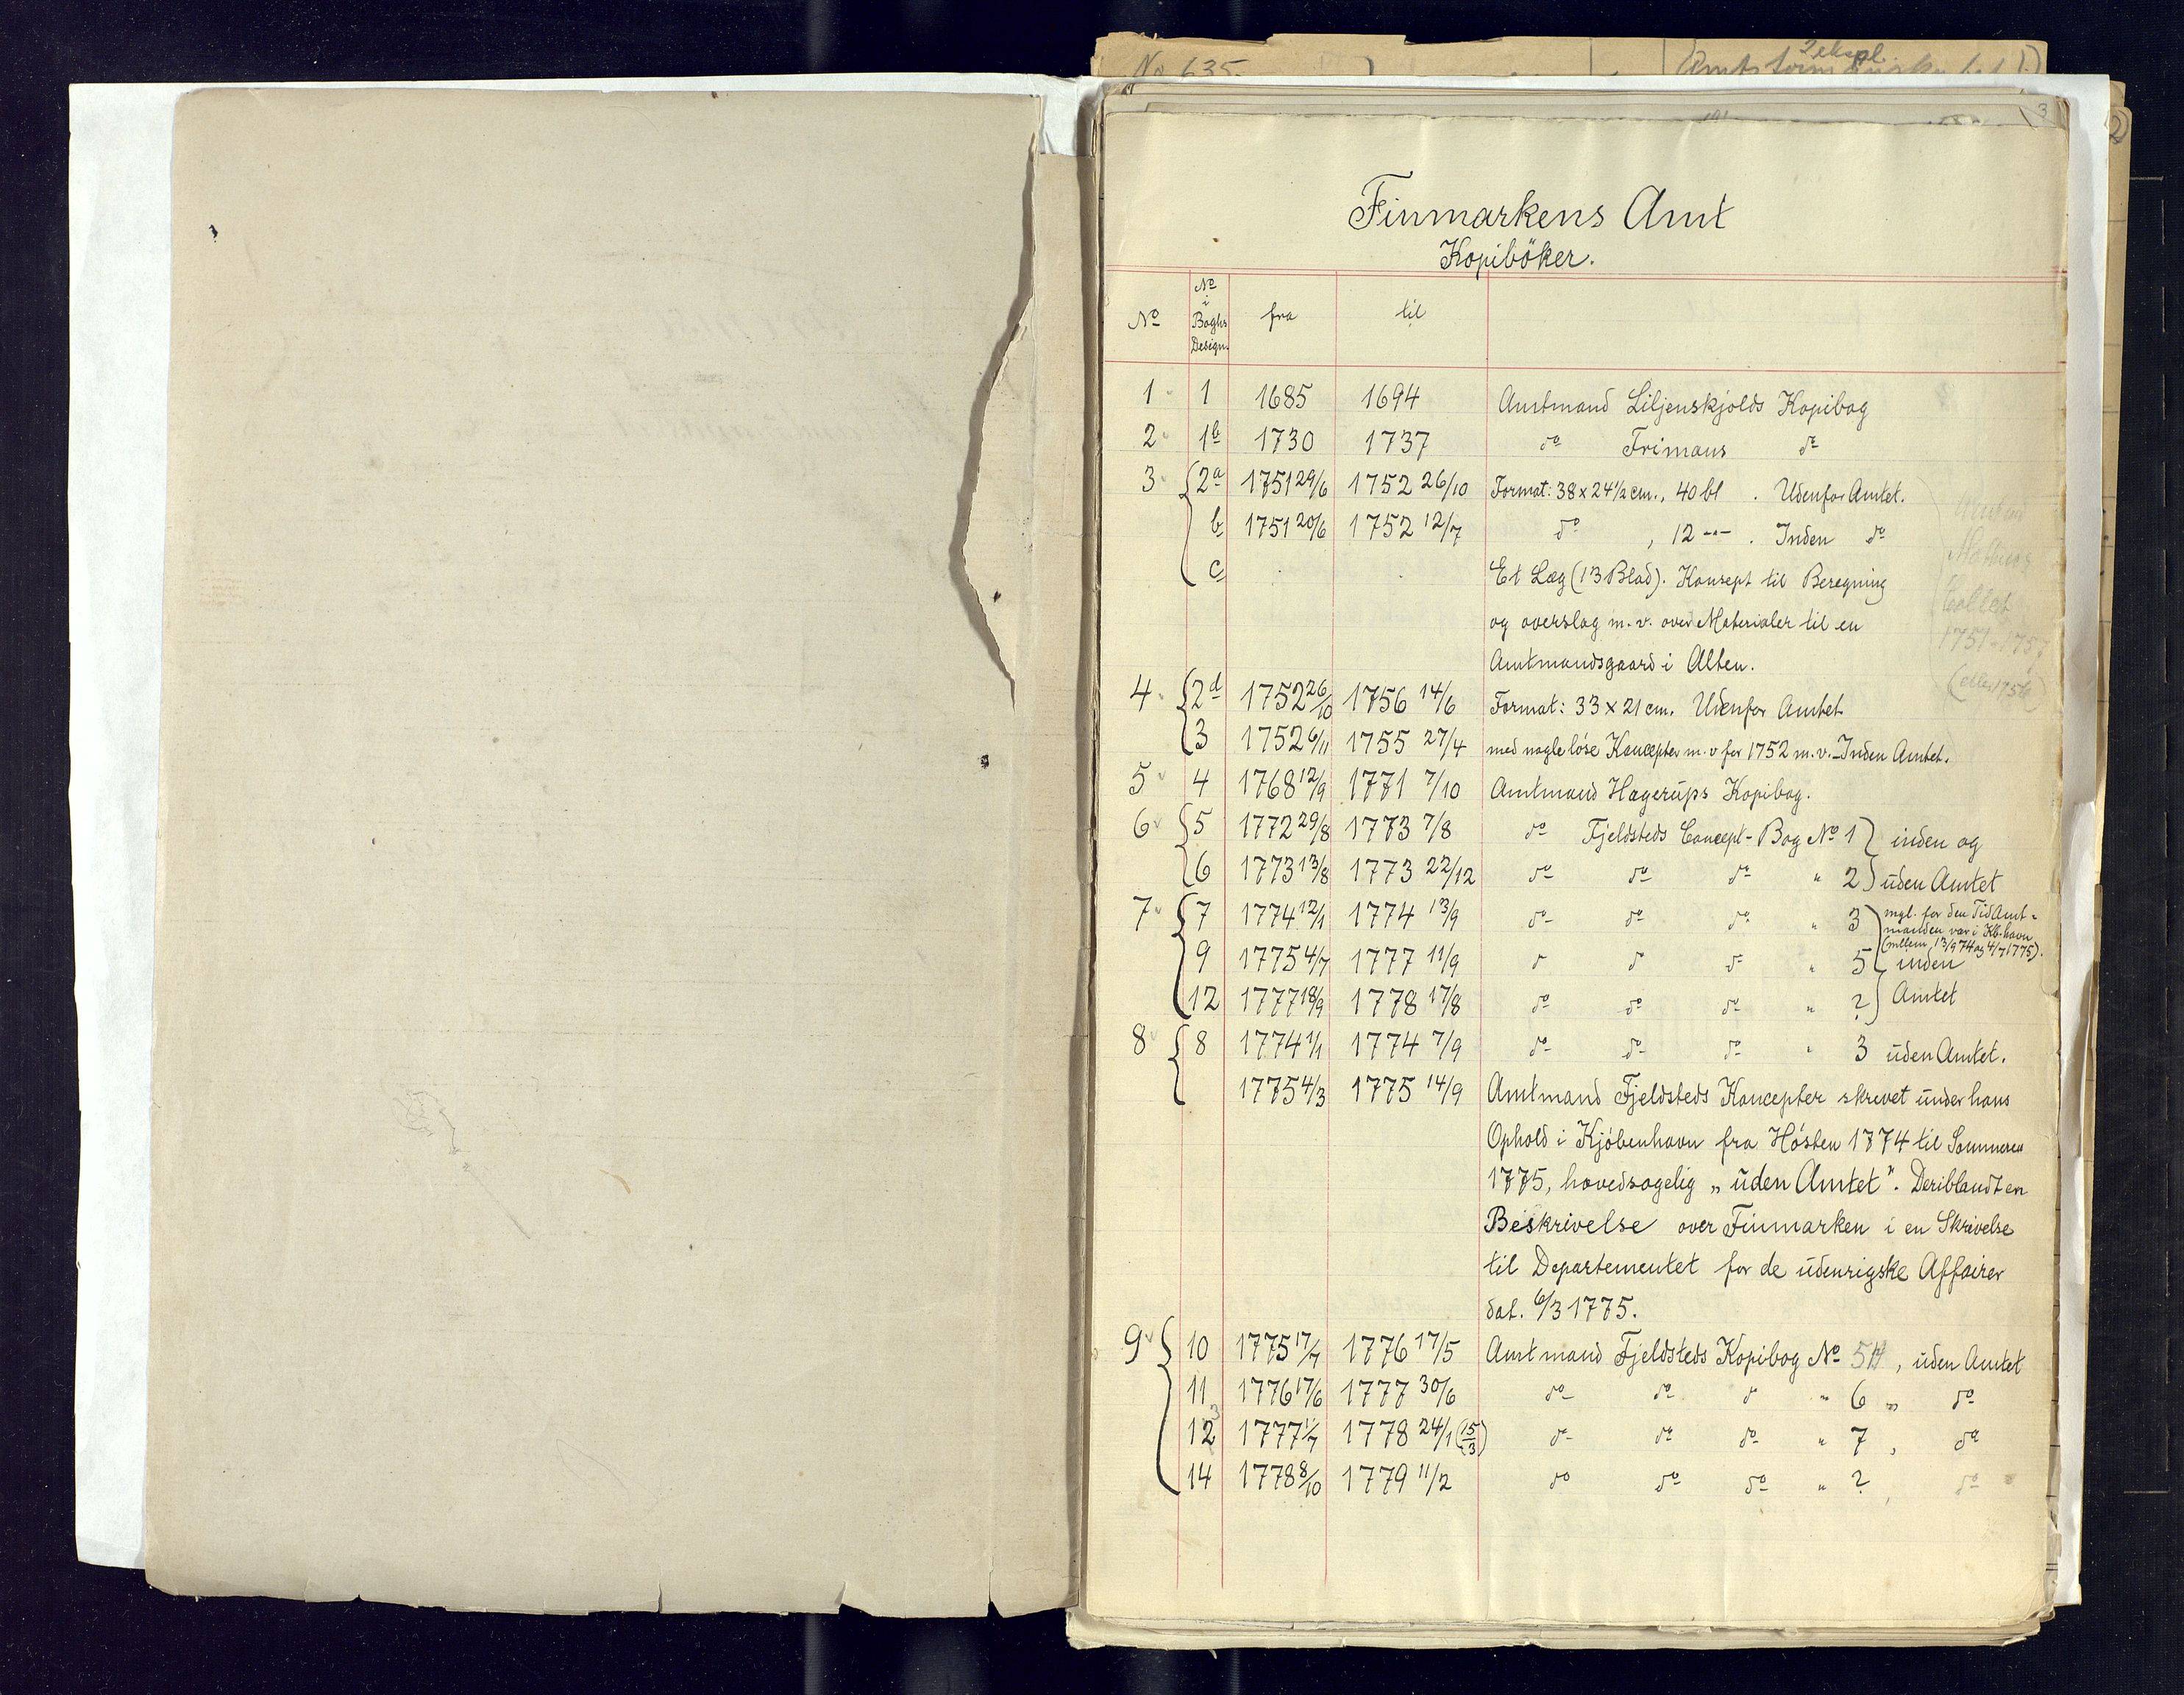 No 635.
2 ekspl.
3
2
Finmarkens Amt
Kopiböker.
No
No i Boghs Design.
fra
til
1 1 1685 1694 Amtmand Liljenskjolds Kopibog
2 1b 1730 1737 do Frimans do
3 2a 1751 29/6 1752 26/10 Format: 38 x 24 1/2 cm., 40 bl . Udenfor Amtet.
b 1751 20/6 1752 12/7 do , 12 -"- . Inden do
c Et Læg (13 Blad). Konsept til Beregning
og overslag m.v. over Materialer til en
Amtmandsgaard i Alten.
Collet
1751-1757
(eller 1756)
4 2d 1752 26/10 1756 14/6 Format: 33 x 21 cm. Udenfor Amtet
3 1752 6/11 1755 27/4 med nogle löse Koncepter m.v for 1752 m.v. - Inden Amtet.
5 4 1768 12/9 1771 7/10 Amtmand Hagerups Kopibog.
6 5 1772 29/8 1773 7/8 do Fjeldsteds Concept-Bog No 1 } inden og
6 1773 13/8 1773 22/12 do do do " 2 } uden Amtet
7 7 1774 12/1 1774 13/9 do do do " 3 mgl. for den Tid Amt-
manden var i Kb.havn
(mellem 13/9 74 og 4/7 1775).
9 1775 4/7 1777 11/9 do do do " 5 inden
12 1777 18/9 1778 17/8 do do do " ? } Amtet
8 8 1774 1/1 1774 7/9 do do do " 3 uden Amtet.
1775 4/3 1775 14/9 Amtmand Fjeldsteds Koncepter skrevet under hans
Ophold i Kjöbenhavn fra Hösten 1774 til Sommeren
1775, hovedsagelig „uden Amtet". Deriblandt en
Beskrivelse over Finmarken i en Skrivelse
til Departementet for de udenrigske Affairer
dat. 6/3 1775.
9 10 1775 17/7 1776 17/5 Amtmand Fjeldsteds Kopibog No 5 , uden Amtet
11 1776 17/6 1777 30/6 do do do " 6 " do
12 3 1777 1/7 1778 24/1 (15/3) do do do " 7 , do
14 1778 8/10 1779 11/2 do do do " ? , do